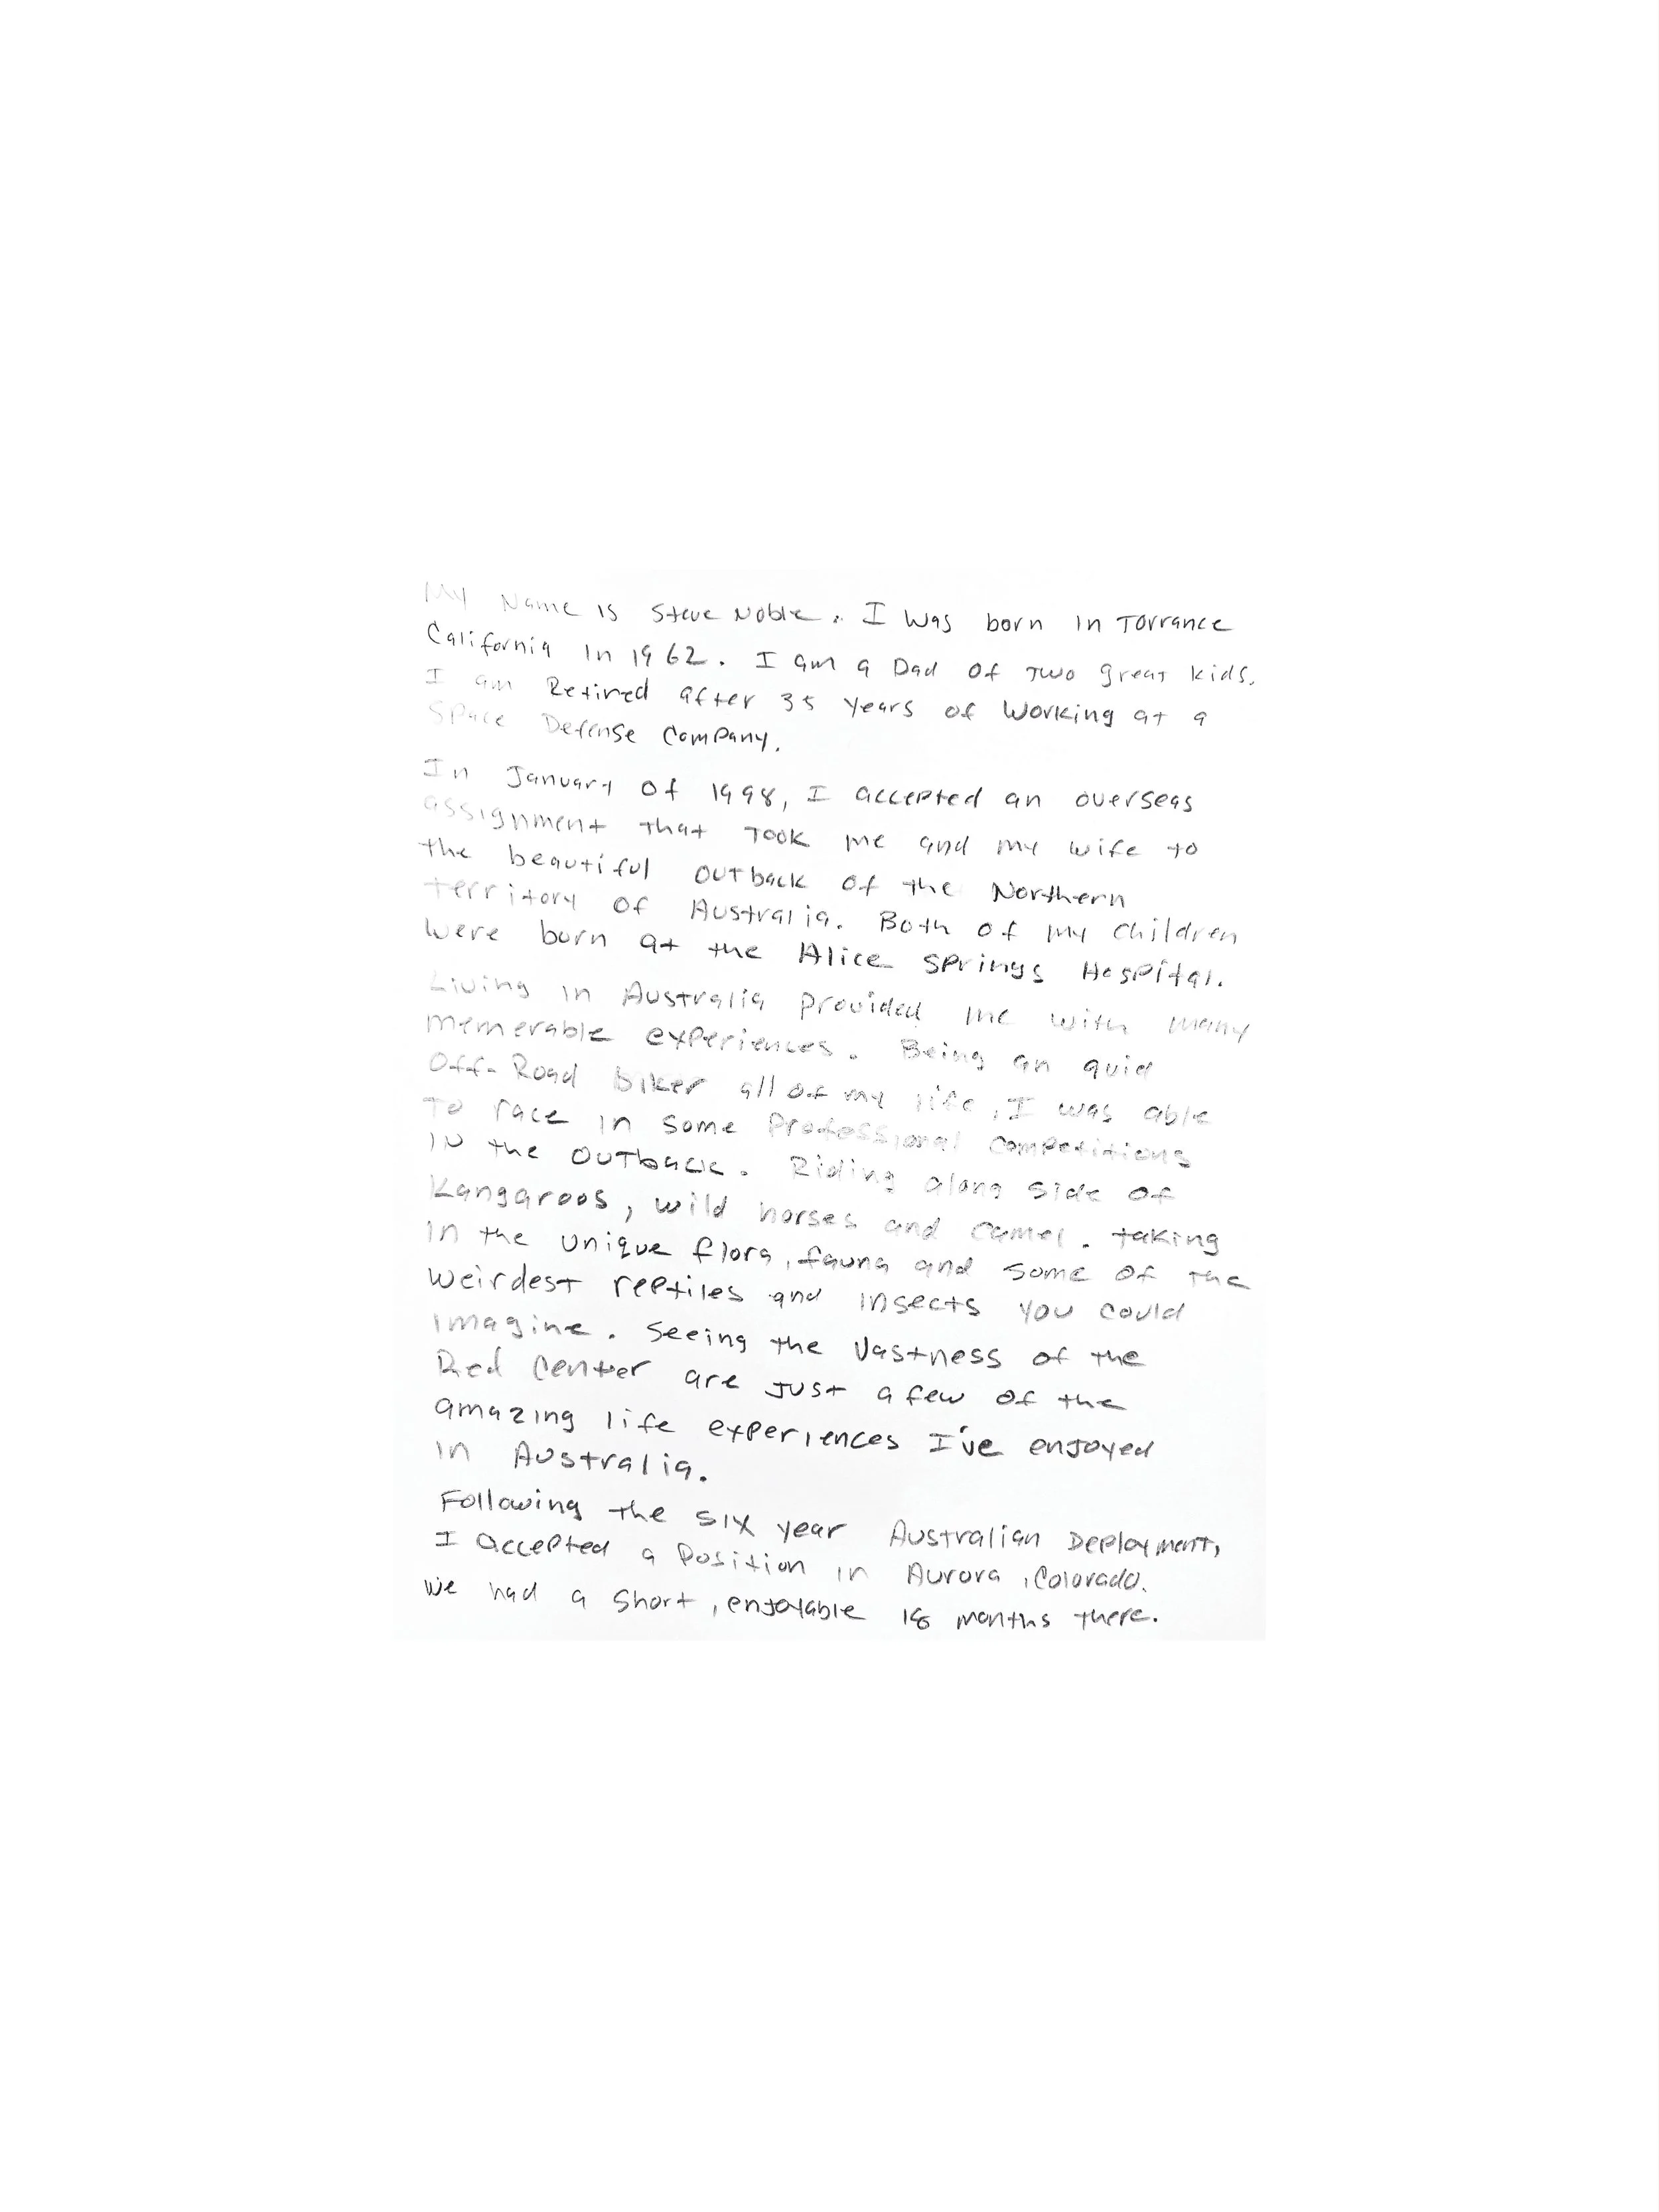 My Name is Steve Noble. I Was born in Torrance
California in 1962. I am a Dad of Two great kids.
I am Retired after 35 years of Working at a
Space Defense Company.
In January of 1998, I accepted an overseas
assignment that Took me and my wife to
the beautiful outback of the Northern
territory of Australia. Both of my children
were born at the Alice Springs Hospital.
Living in Australia provided me with many
memerable experiences. Being an quid
Off-Road biker all of my life, I was able
To race in some Professional Competitions
IN the OUTback. Riding along side of
Kangaroos, wild horses and camel. taking
in the unique flora, fauna and some of the
weirdest reptiles and insects you could
imagine. Seeing the Vastness of the
Red Center are just a few of the
amazing life experiences I've enjoyed
in Australia.
Following the six year Australian Deployment,
I accepted a Position in Aurora, Colorado.
We had a short, enjoyable 18 months there.